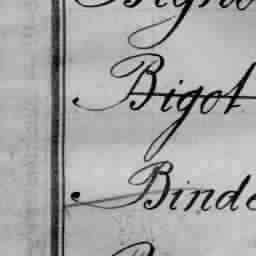 Bigot
Binde